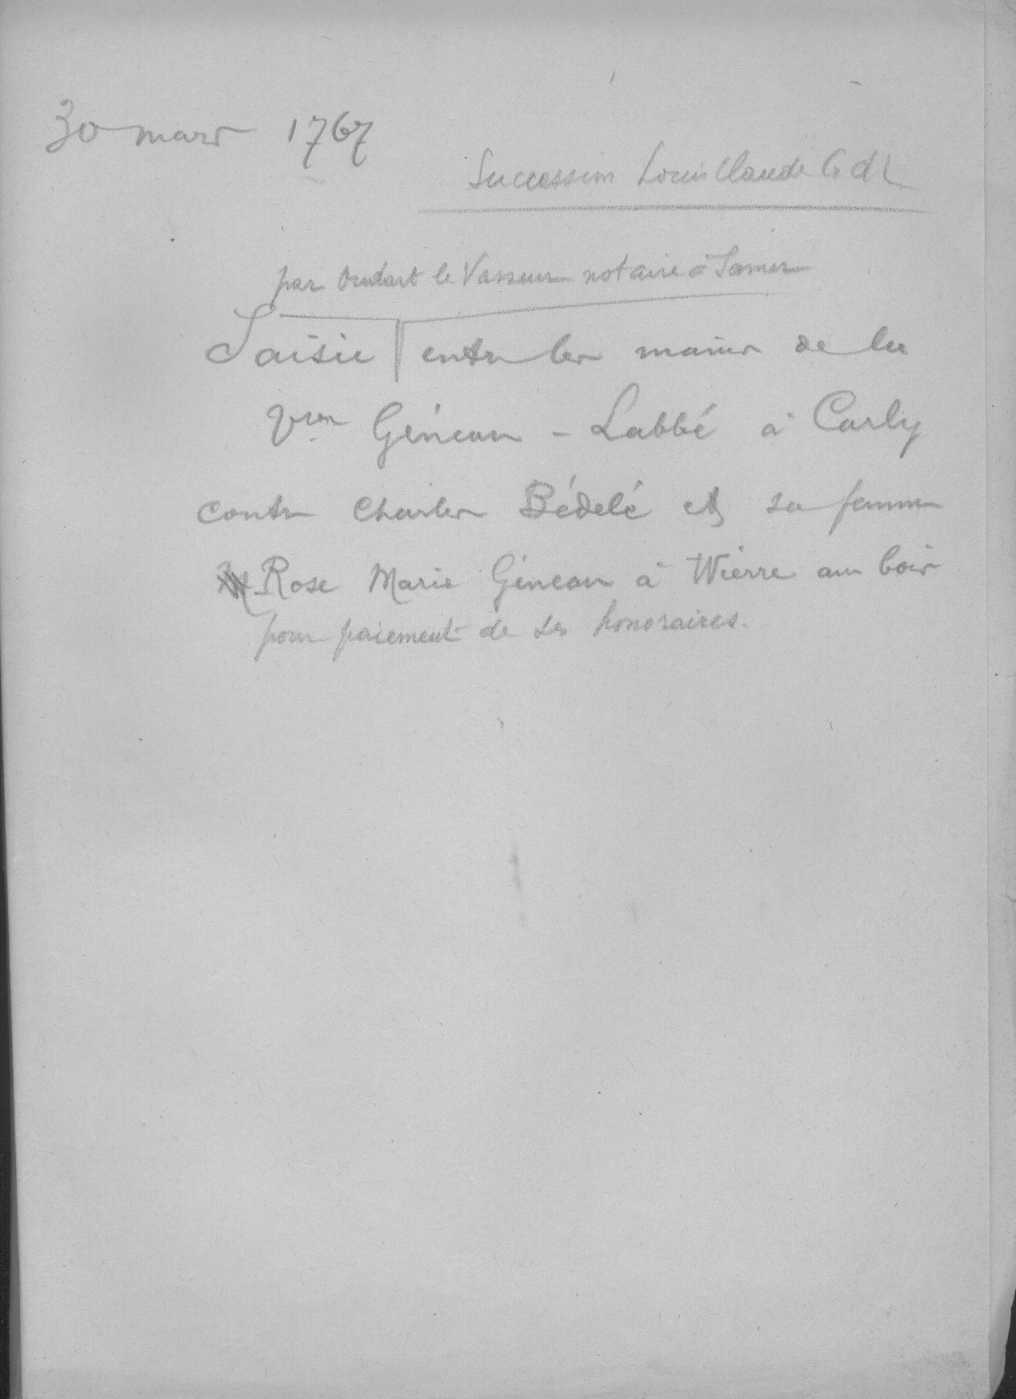 30 mars 1767
Succession Louis Claude G d L
par Oudart le Vasseur notaire à Samer
Saisie entre les mains de la
Vve Géneau - Labbé à Carly
contre Charles Bédelé et sa femme
Rose Marie Géneau à Wierre au bois
pour paiement de ses honoraires.